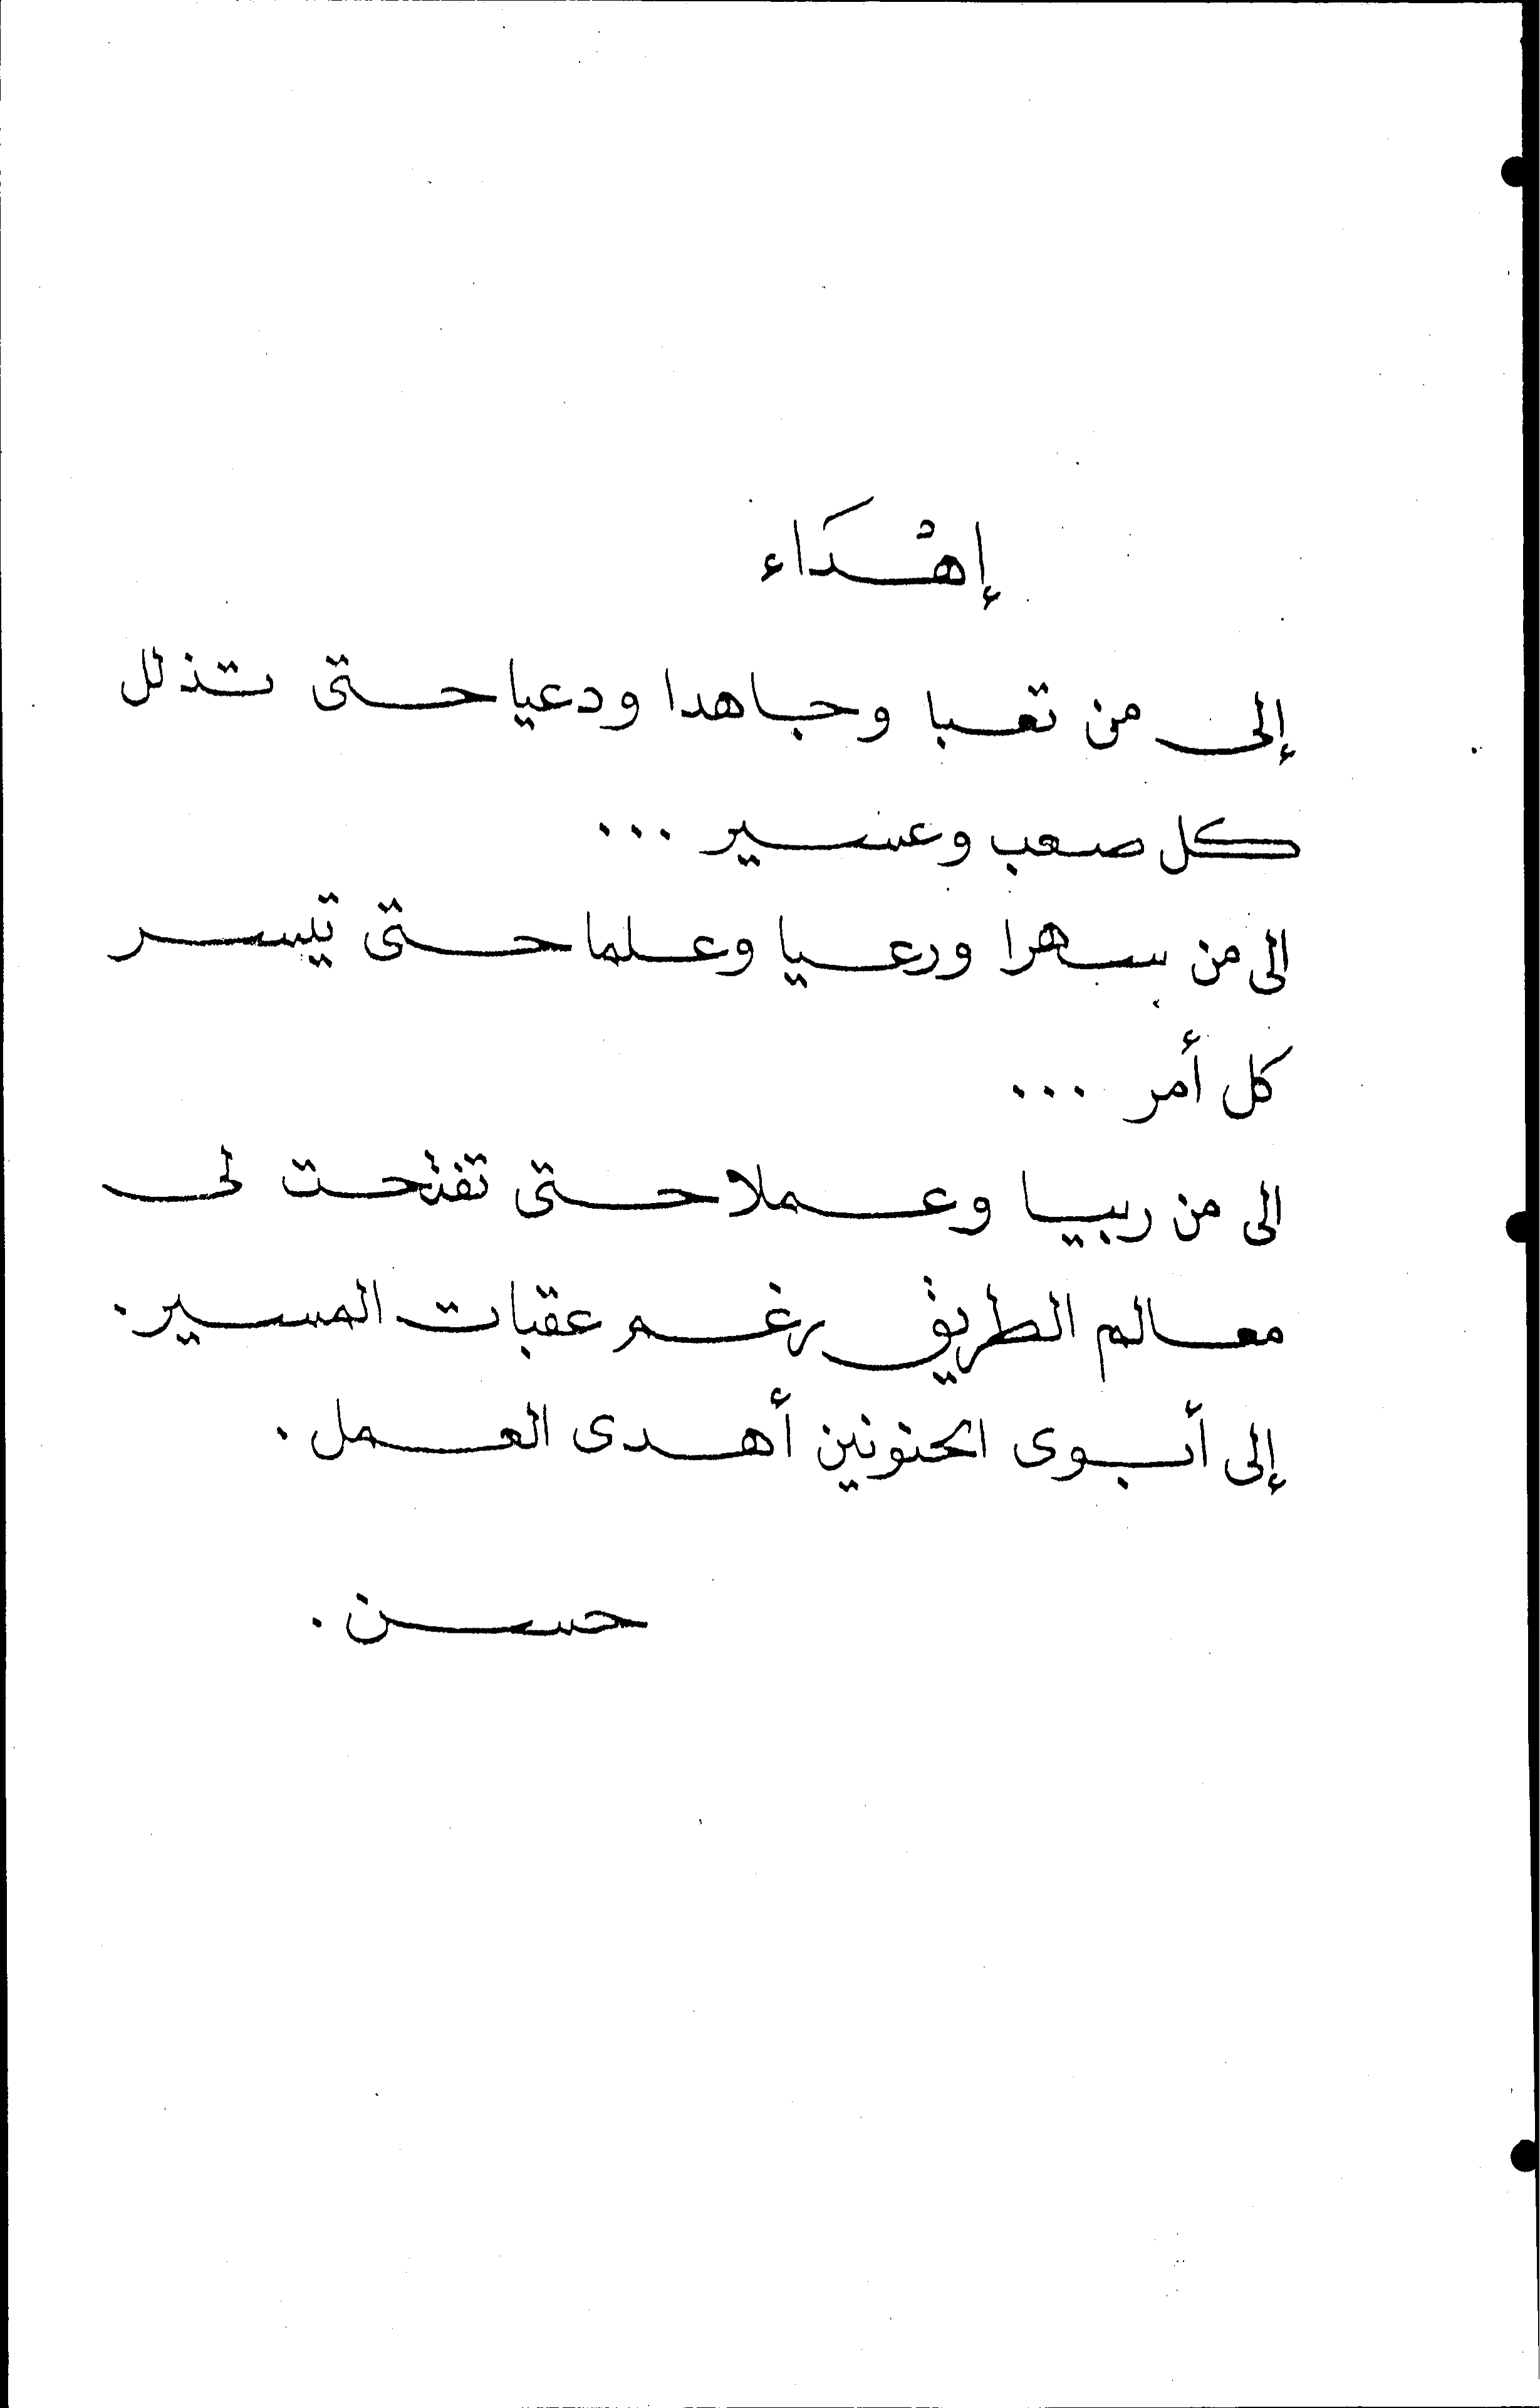 إهْدَاء
إلى من تعبا وجاهدا ودعيا حتى تذلل
كل صعب وعسير ...
الى من سهرا ورعيا وعلما حتى تيسر
كل أمر ...
الى من ربيا وعملا حتى تفتحت لى
معالم الطريق رغم عقبات المسير.
إلى أبوى الحنونين أهدى العمل.
حسن.